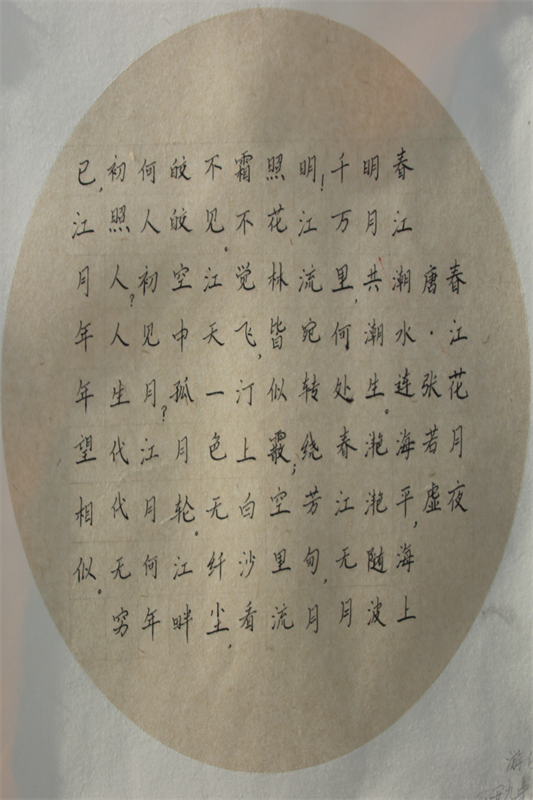 春江花月夜
唐·张若虚
春江潮水连海平,海上
明月共潮生。滟滟随波
千万里,何处春江无月
明!江流宛转绕芳甸,月
照花林皆似霰;空里流
霜不觉飞,汀上白沙看
不见。江天一色无纤尘,
皎皎空中孤月轮。江畔
何人初见月?江月何年
初照人?人生代代无穷
已,江月年年望相似。
游